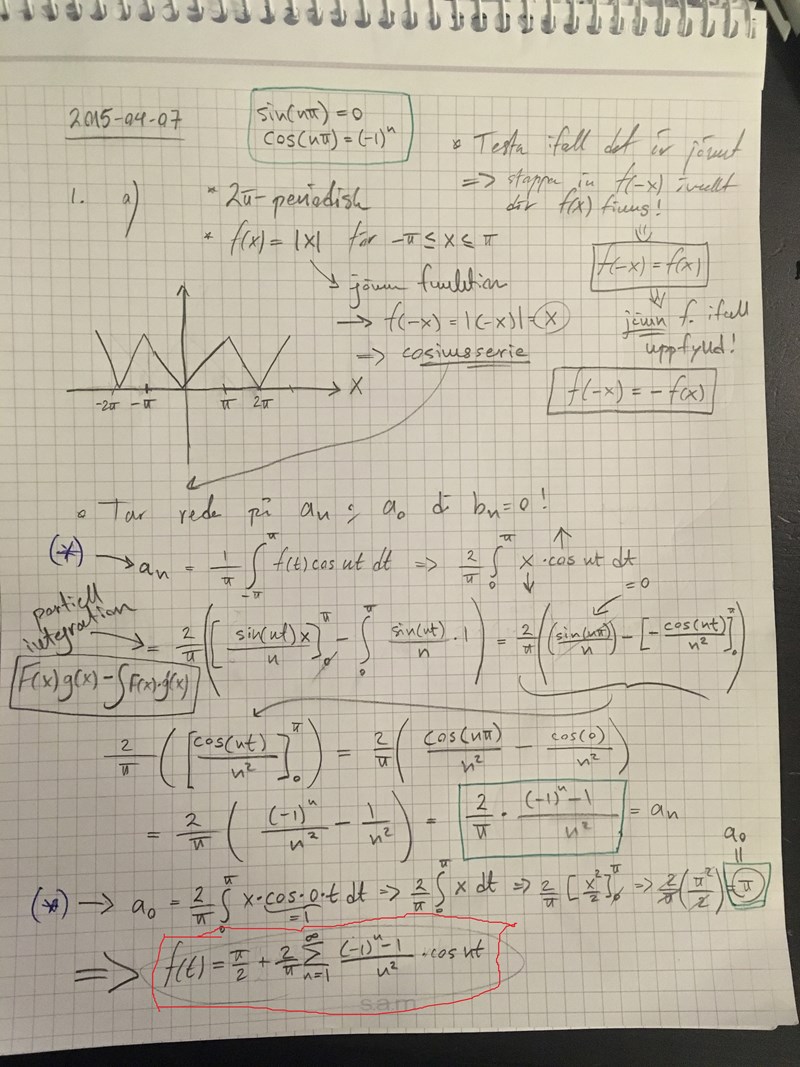 2015-04-07
sin(nπ) = 0
cos(nπ) = (-1)^n
* Testa ifall det är jämnt
=> stoppa in f(-x) istället
där f(x) finns!
⇓
f(-x) = f(x)
⇓
jämn f. ifall
uppfylld!
f(-x) = - f(x)
1. a)
* 2π-periodisk
* f(x) = |x| för -π ≤ x ≤ π
↘ jämn funktion
→ f(-x) = |(-x)| = x
=> cosinusserie
-2π -π π 2π x
* Tar reda på an & a0 då bn = 0!
(*) → an = 1/π ∫_{-π}^{π} f(t) cos nt dt => 2/π ∫_0^π x · cos nt dt
partiell
integration
= 2/π ([sin(nt)x/n]_0^π - ∫_0^π sin(nt)/n · 1) = 2/π ((sin(nπ)/n) - [-cos(nt)/n²]_0^π)
= 0
F(x)g(x) - ∫F(x)·g'(x)
2/π ([cos(nt)/n²]_0^π) = 2/π (cos(nπ)/n² - cos(0)/n²)
= 2/π ((-1)^n/n² - 1/n²) = 2/π · ((-1)^n - 1)/n² = an
(*) → a0 = 2/π ∫_0^π x · cos · 0 · t dt => 2/π ∫_0^π x dt => 2/π [x²/2]_0^π => 2/π (π²/2) = π
= 1
a0
=
=> f(t) = π/2 + 2/π Σ_{n=1}^{∞} ((-1)^n - 1)/n² · cos nt
s.a.m